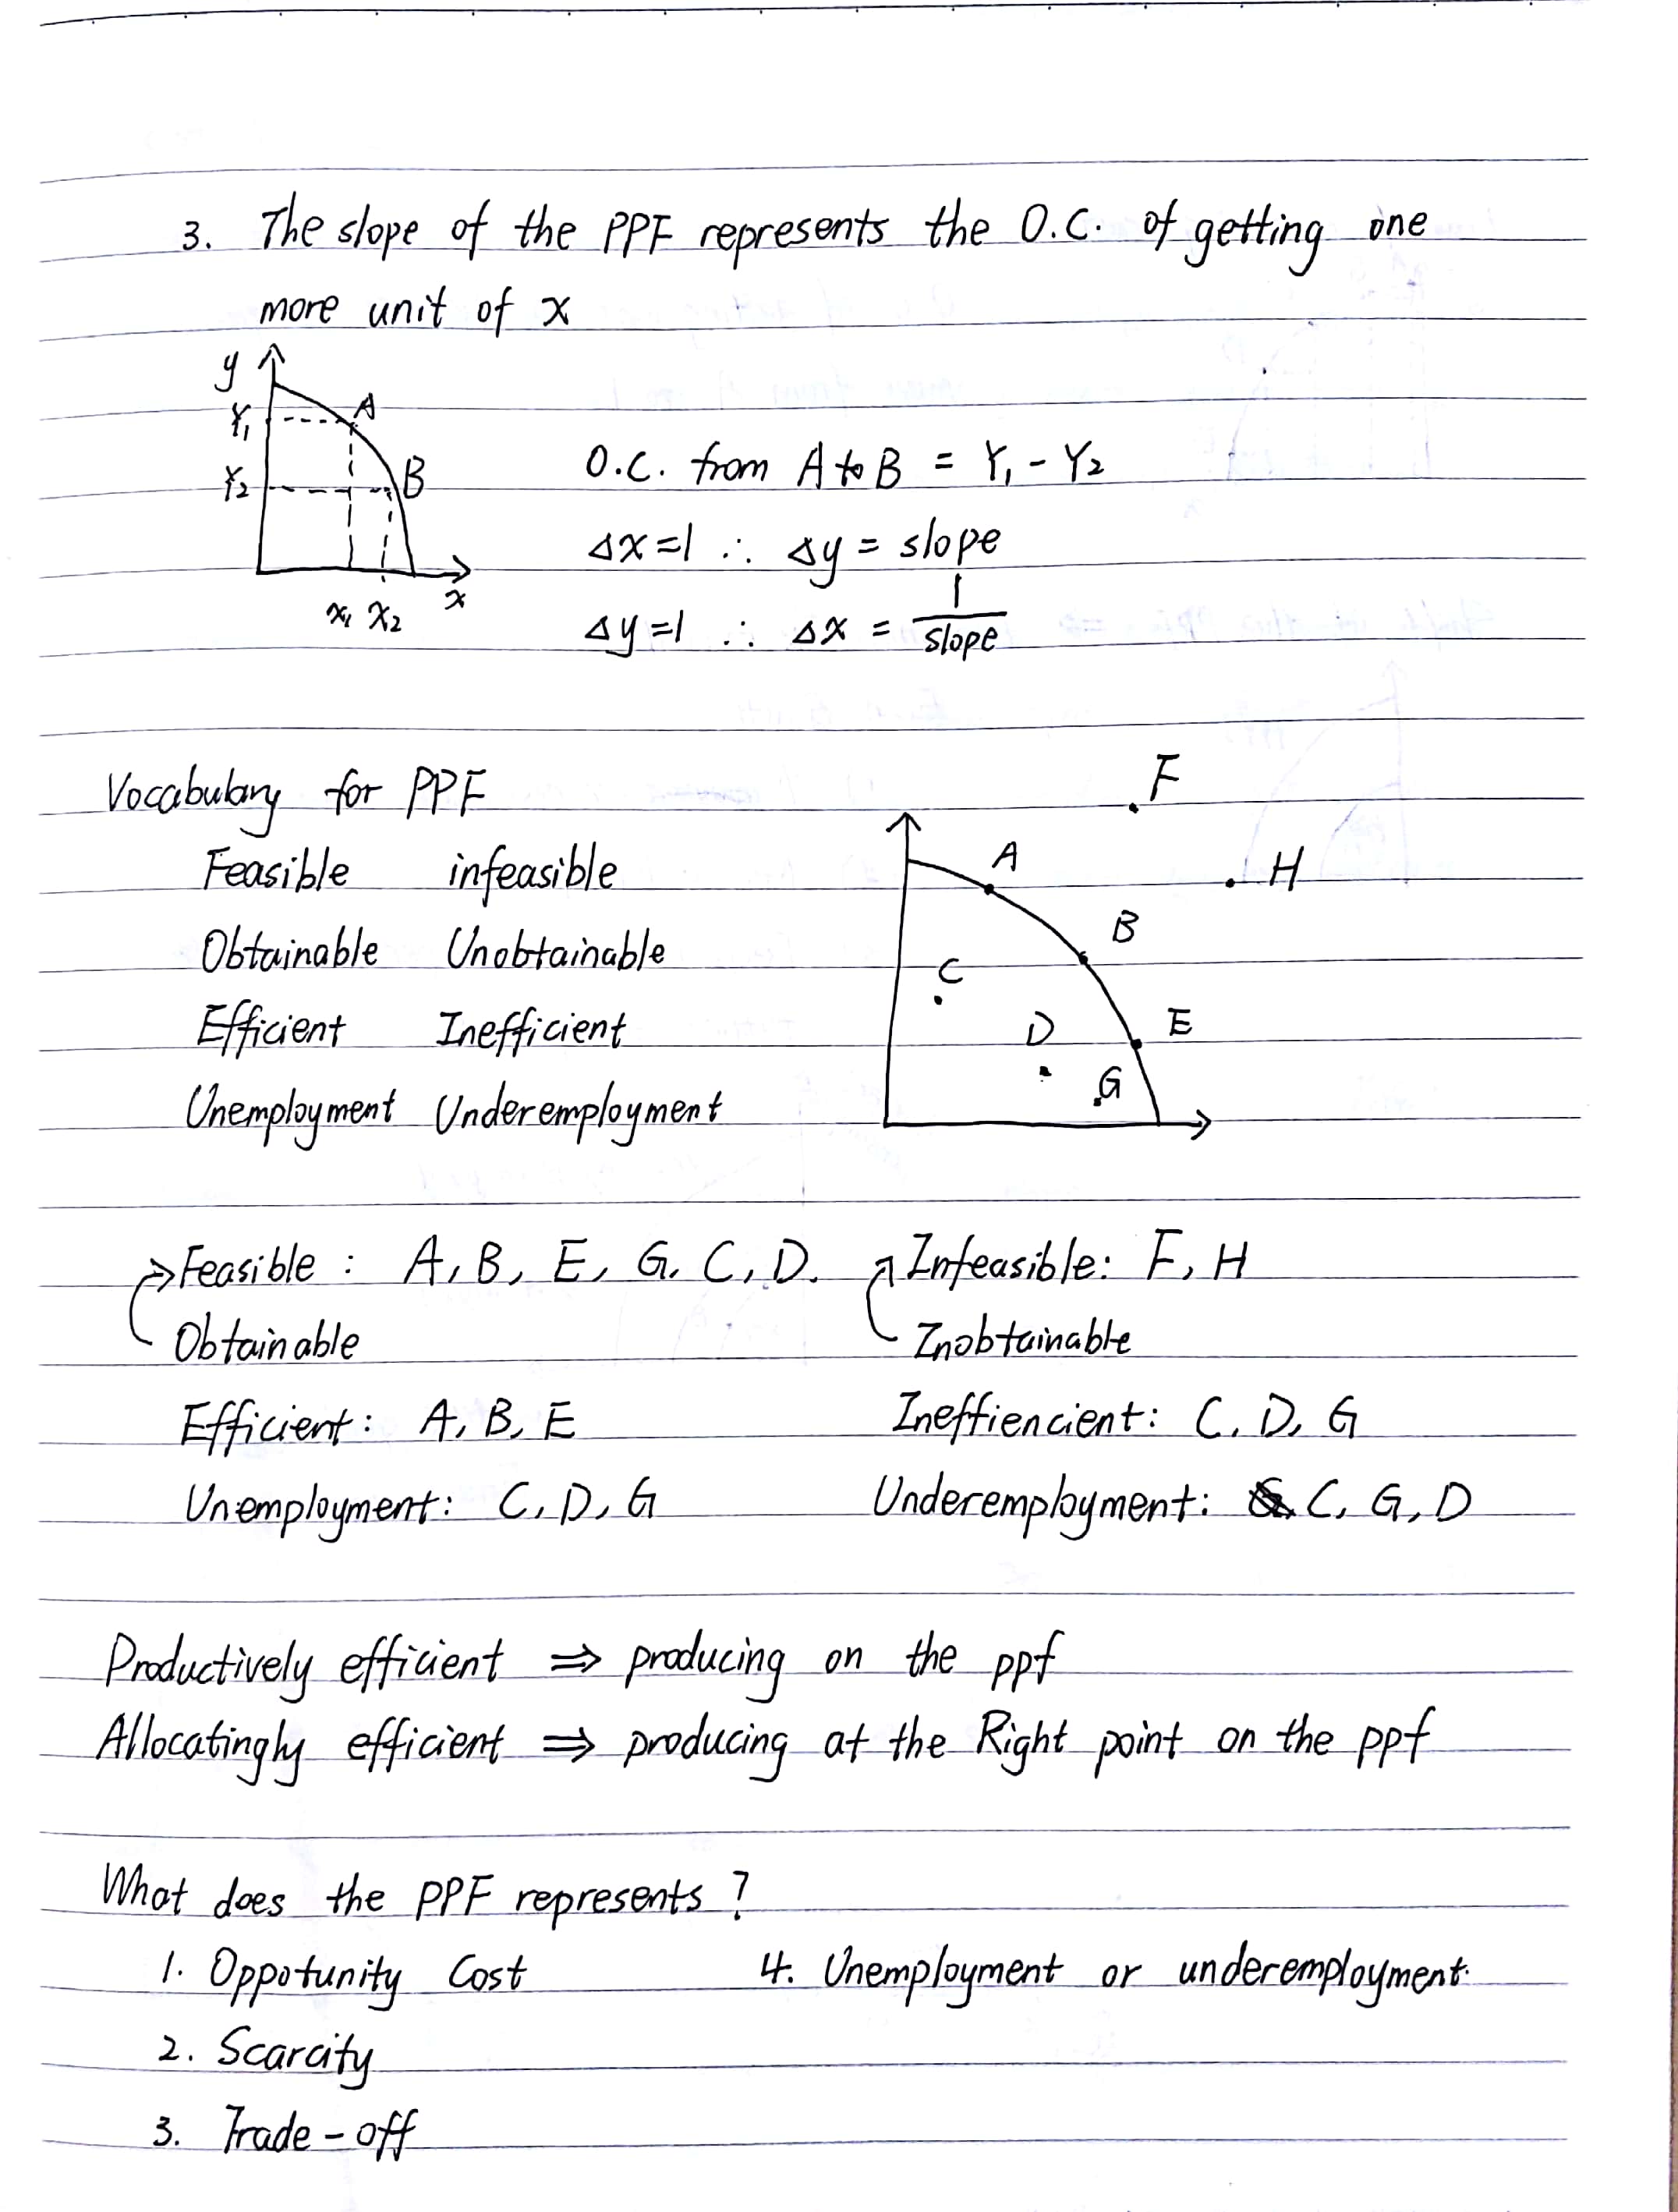 3. The slope of the PPF represents the O.C. of getting one
more unit of x
y
Y1
A
Y2
B
x1 x2 x
O.C. from A to B = Y1 - Y2
Δx=1 ∴ Δy = slope
Δy=1 ∴ Δx = 1/slope
Vocabulary for PPF
Feasible infeasible
Obtainable Unobtainable
Efficient Inefficient
Unemployment Underemployment
F
A
H
B
C
D
E
G
Feasible : A, B, E, G, C, D. Infeasible: F, H
Obtainable Inobtainable
Efficient: A, B, E Ineffiencient: C, D, G
Unemployment: C, D, G Underemployment: C, G, D
Productively efficient ⇒ producing on the ppf
Allocatingly efficient ⇒ producing at the Right point on the ppf
What does the PPF represents ?
1. Oppotunity Cost 4. Unemployment or underemployment.
2. Scarcity
3. Trade-off